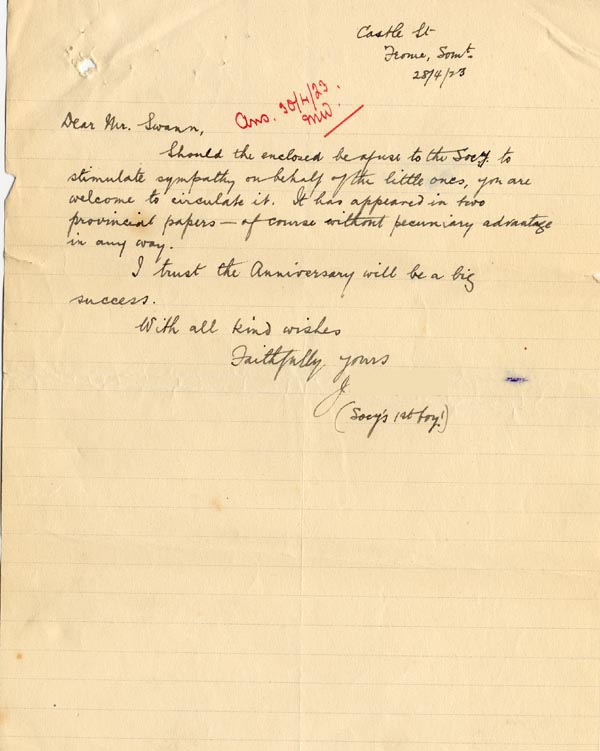 Castle St
Frome, Somt.
28/4/23
Ans. 30/4/23.
MW.
Dear Mr. Swann,
Should the enclosed be of use to the Socy. to
stimulate sympathy on behalf of the little ones, you are
welcome to circulate it. It has appeared in two
provincial papers — of course without pecuniary advantage
in any way.
I trust the Anniversary will be a big
success.
With all kind wishes
Faithfully yours
J
(Socy's 1st boy!)